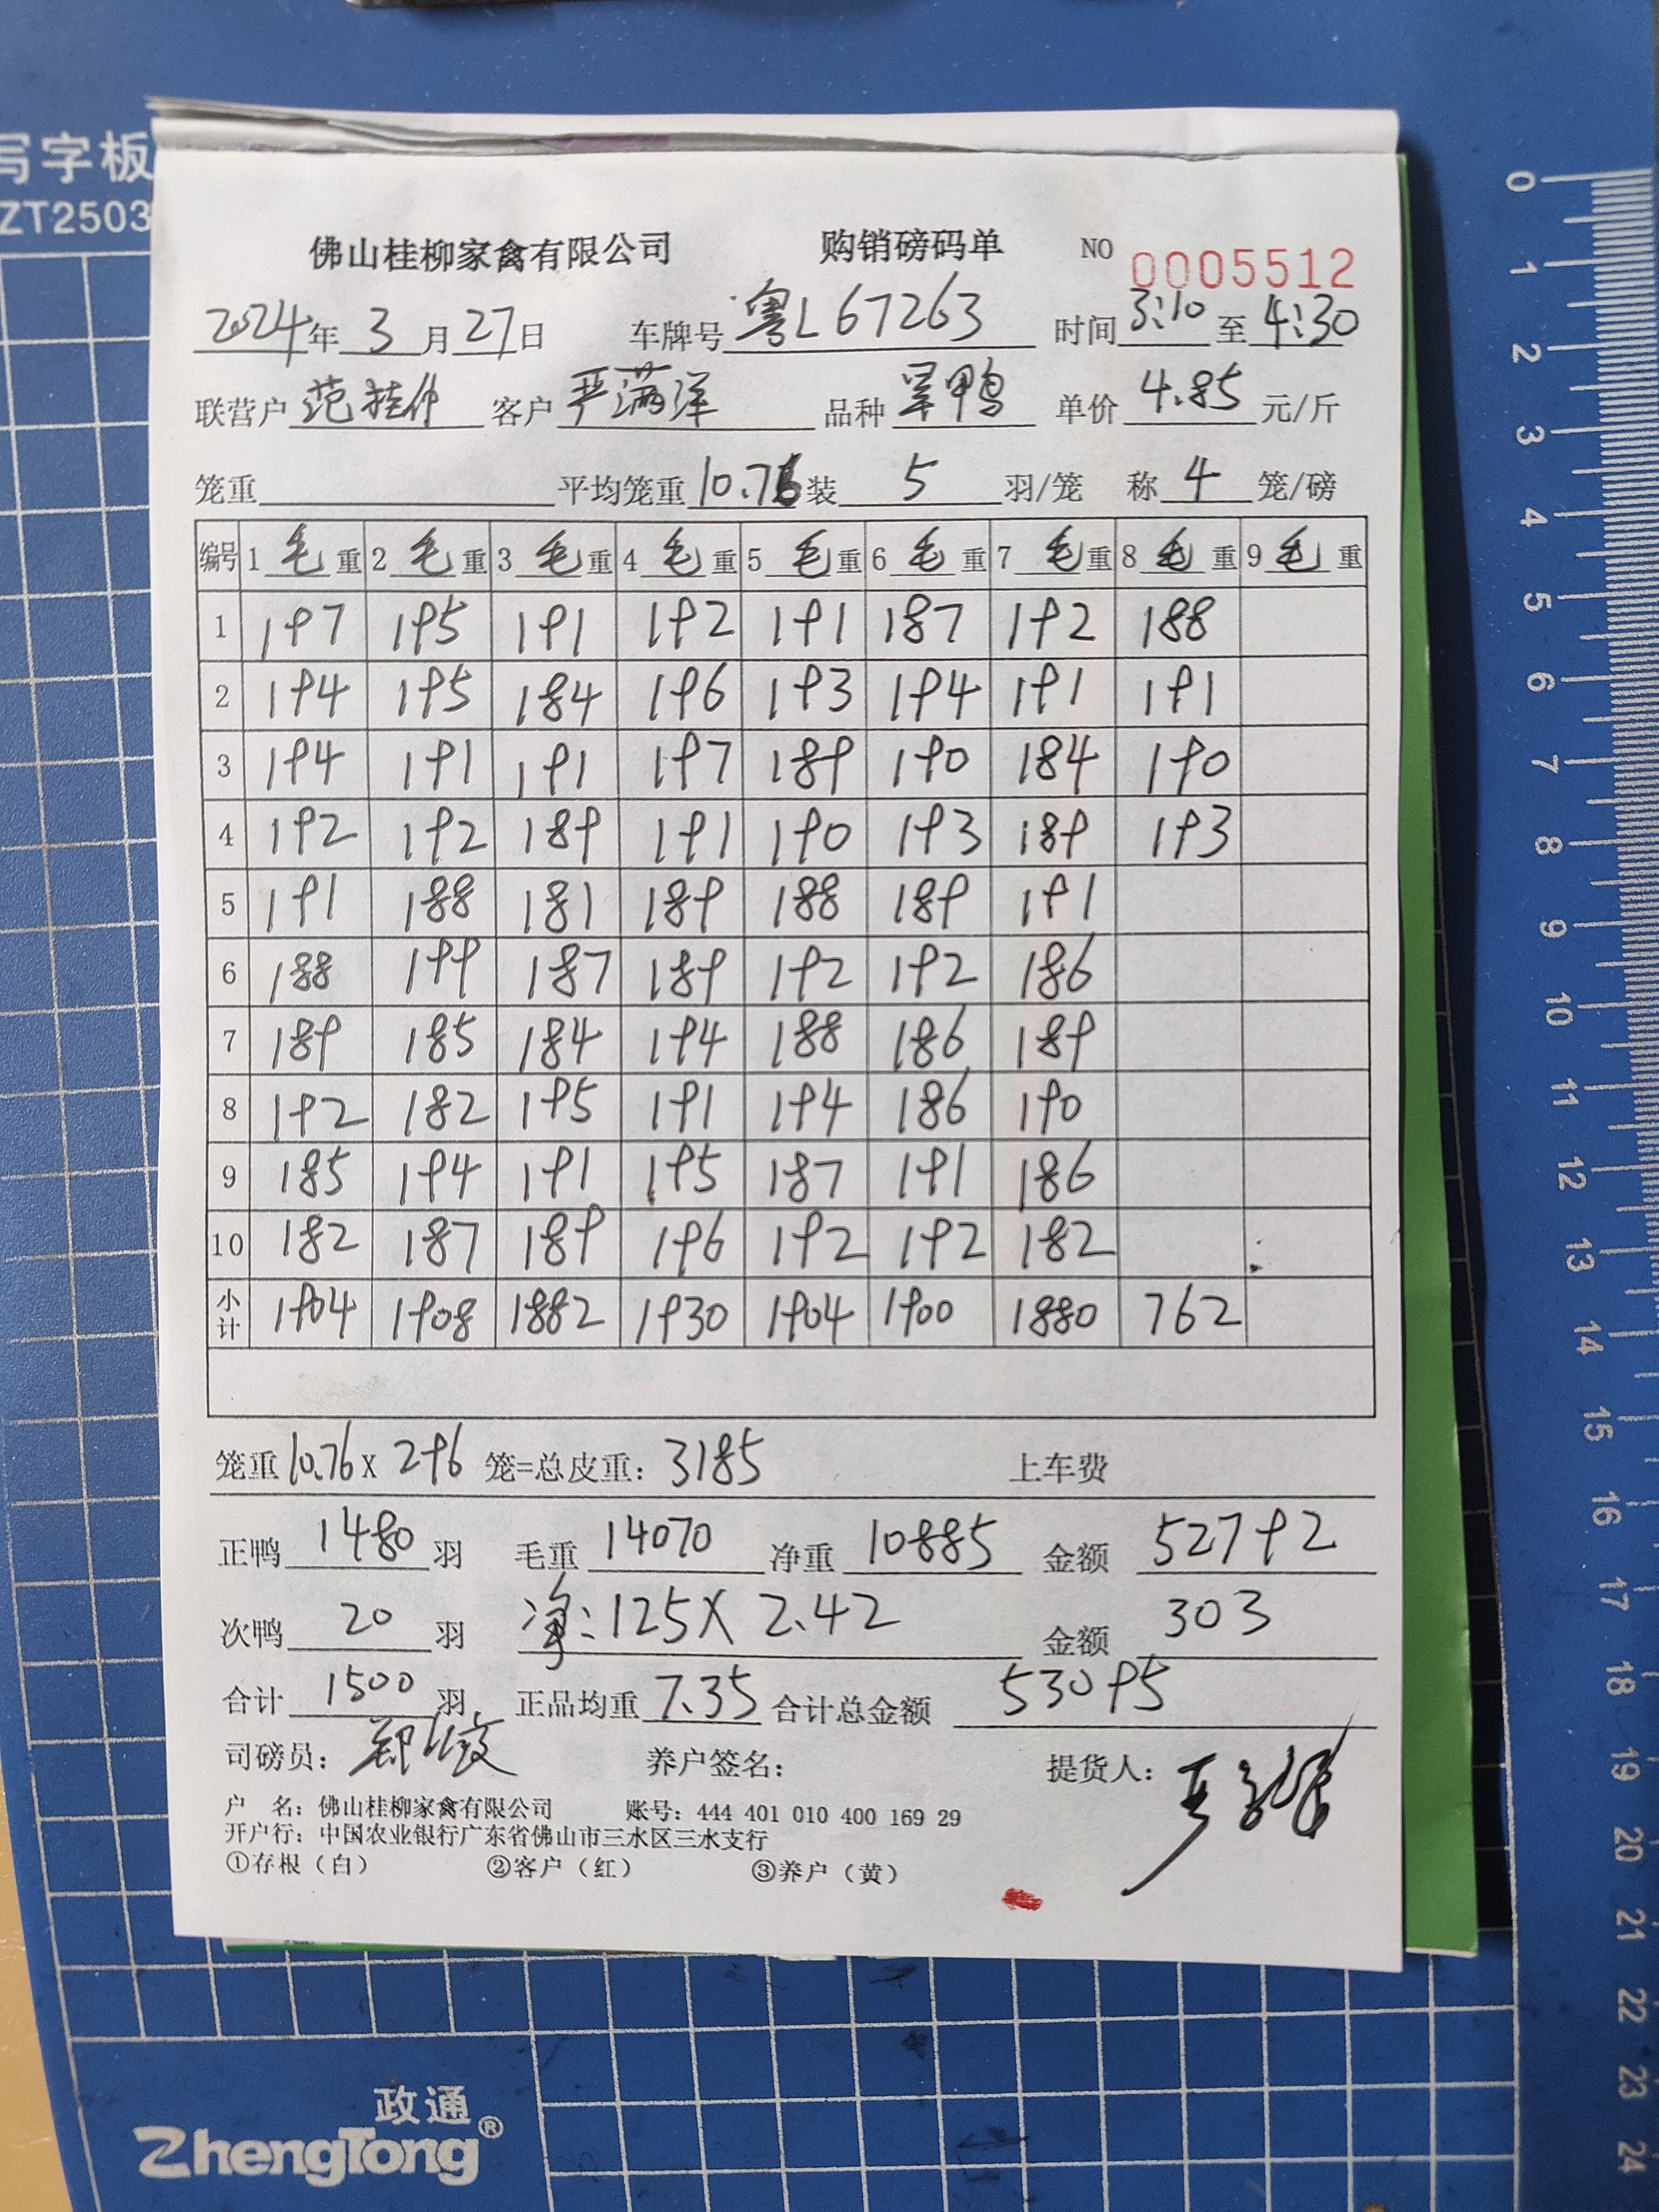 写字板
ZT2503
佛山桂柳家禽有限公司 购销磅码单 NO 0005512
2024年3月27日 车牌号 粤L67263 时间 3:10 至 4:30
联营户 范桂伟 客户 严满洋 品种 旱鸭 单价 4.85 元/斤
笼重 平均笼重 10.76 装 5 羽/笼 称 4 笼/磅
编号 1 毛 重 2 毛 重 3 毛 重 4 毛 重 5 毛 重 6 毛 重 7 毛 重 8 毛 重 9 毛 重
1 197 195 191 192 191 187 192 188
2 194 195 184 196 193 194 191 191
3 194 191 191 197 189 190 184 190
4 192 192 189 191 190 193 189 193
5 191 188 181 189 188 189 191
6 188 199 187 189 192 192 186
7 189 185 184 194 188 186 189
8 192 182 195 191 194 186 190
9 185 194 191 195 187 191 186
10 182 187 189 196 192 192 182
小计 1904 1908 1882 1930 1904 1900 1880 762
笼重 10.76 X 296 笼=总皮重: 3185 上车费
正鸭 1480 羽 毛重 14070 净重 10885 金额 52792
次鸭 20 羽 净: 125 X 2.42 金额 303
合计 1500 羽 正品均重 7.35 合计总金额 53095
司磅员: 养户签名: 提货人:
户 名: 佛山桂柳家禽有限公司 账号: 444 401 010 400 169 29
开户行: 中国农业银行广东省佛山市三水区三水支行
①存根(白) ②客户(红) ③养户(黄)
政通
ZhengTong®
0
1
2
3
4
5
6
7
8
9
10
11
12
13
14
15
16
17
18
19
20
21
22
23
24